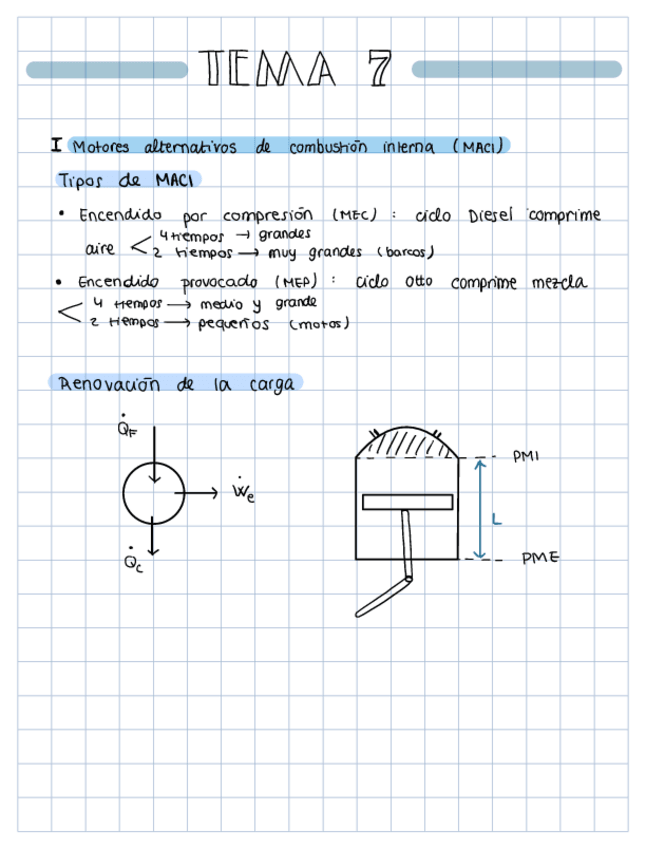 TEMA 7
I Motores alternativos de combustión interna (MACI)
Tipos de MACI
• Encendido por compresión (MEC) : ciclo Diesel comprime
aire < 4 tiempos → grandes
2 tiempos → muy grandes (barcos)
• Encendido provocado (MEP) : ciclo Otto comprime mezcla
< 4 tiempos → medio y grande
2 tiempos → pequeños (motos)
Renovación de la carga
Q̇F
Ẇe
Q̇c
PMI
L
PME